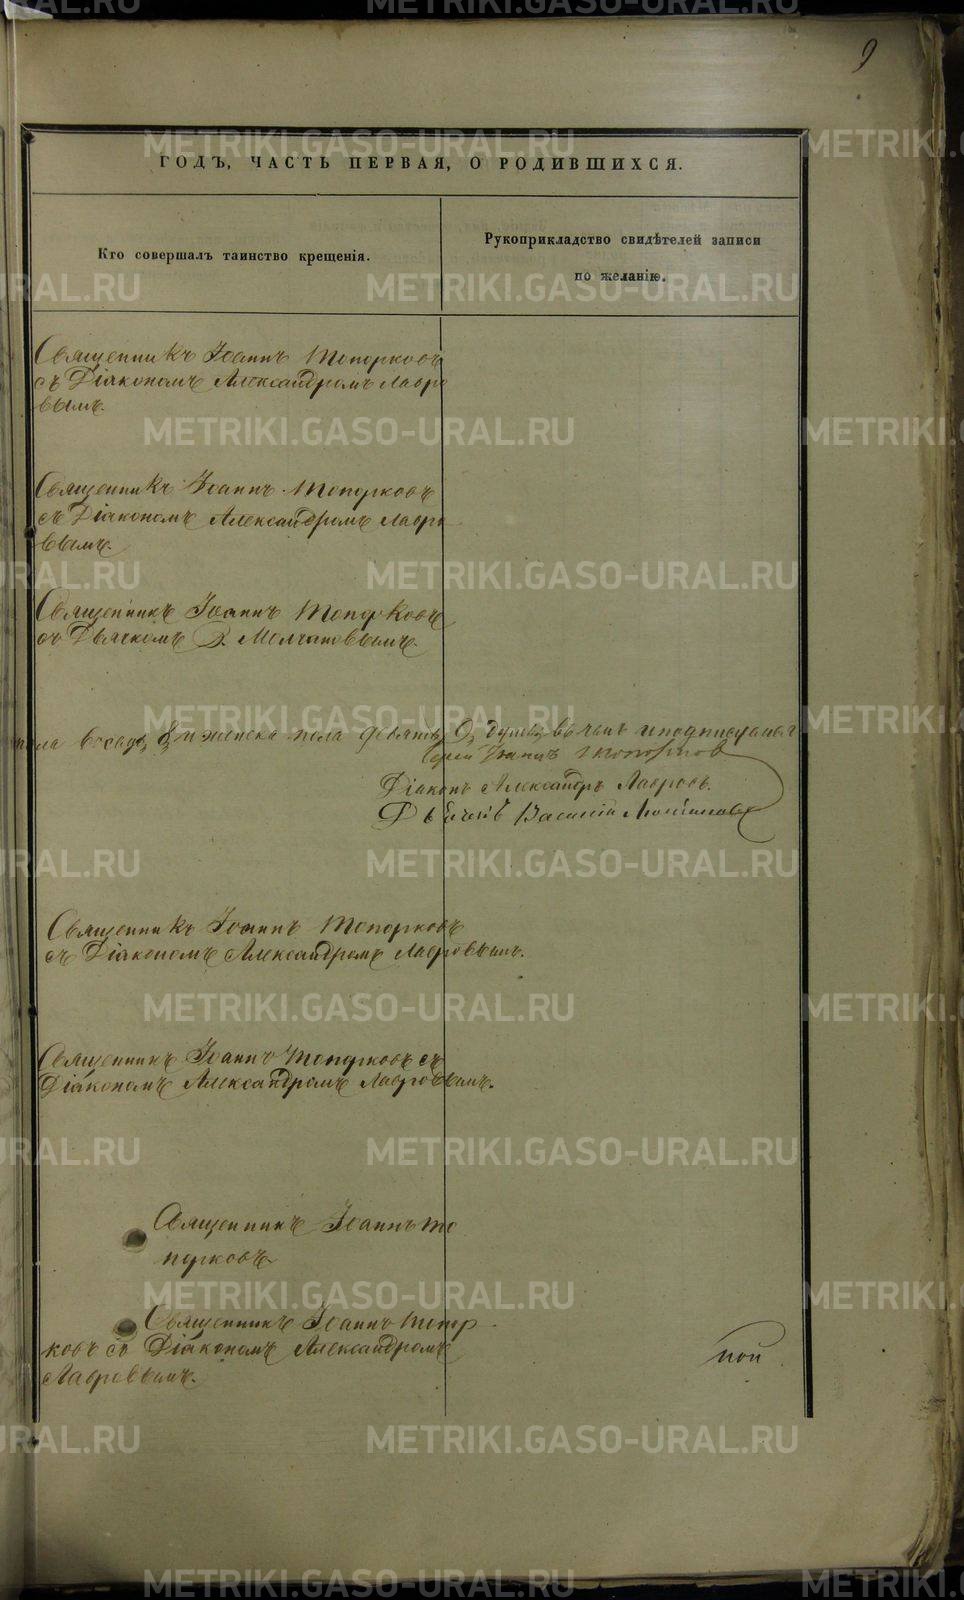 9
ГОДЪ, ЧАСТЬ ПЕРВАЯ, О РОДИВШИХСЯ.
Кто совершалъ таинство крещенія.
Рукоприкладство свидѣтелей записи
по желанію.
Священникъ Іоаннъ Топорковъ
съ Діакономъ Александромъ Лавро
вымъ.
Священникъ Іоаннъ Топорковъ
съ Діакономъ Александромъ Лавро
вымъ.
Священникъ Іоаннъ Топорковъ
съ Дьячкомъ В. Молчановымъ.
пола восемь 8, и женска пола девять 9, душъ, въ чемъ и подписуемся
Іерей Іоаннъ Топорковъ
Діаконъ Александръ Лавровъ.
Дьячекъ Василій Молчановъ
Священникъ Іоаннъ Топорковъ
съ Діакономъ Александромъ Лавровымъ.
Священникъ Іоаннъ Топорковъ съ
Діакономъ Александромъ Лавровымъ.
Священникъ Іоаннъ То
порковъ
Священникъ Іоаннъ Топор
ковъ съ Діакономъ Александромъ
Лавровымъ.
ной
METRIKI.GASO-URAL.RU